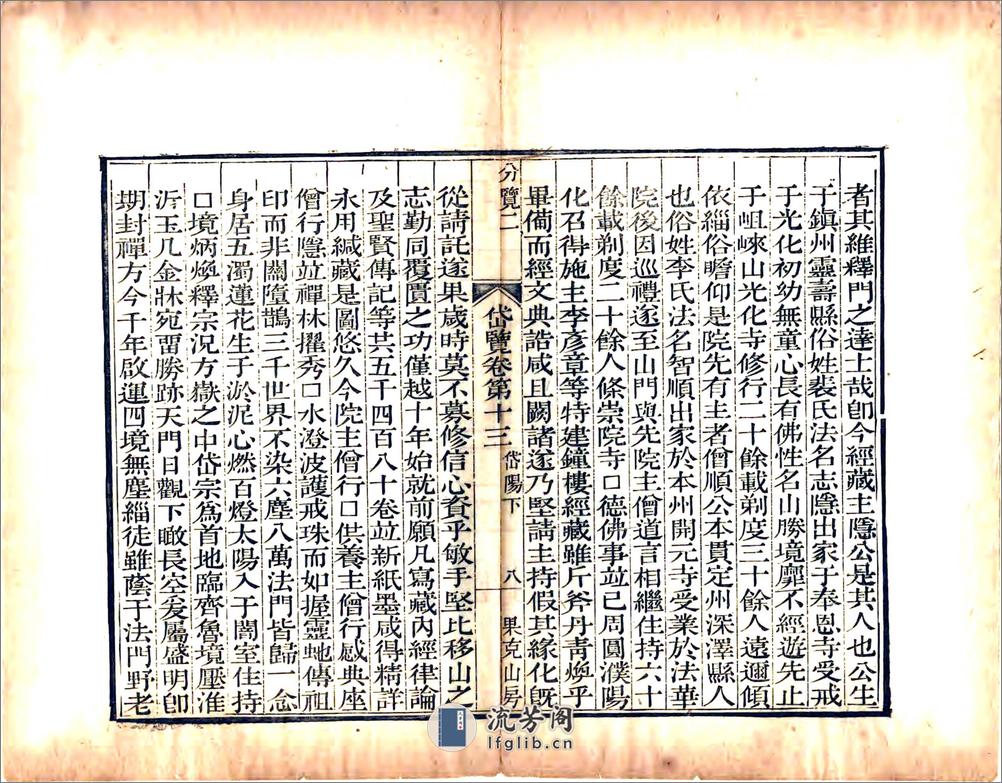 者其維釋門之達士哉卽今經藏主隱公是其人也公生
于鎮州靈壽縣俗姓裴氏法名志隱出家于奉恩寺受戒
于光化初幼無童心長有佛性名山勝境靡不經遊先止
于岨崍山光化寺修行二十餘載剃度三十餘人遠邇傾
依緇俗瞻仰是院先有主者僧順公本貫定州深澤縣人
也俗姓李氏法名智順出家於本州開元寺受業於法華
院後因巡禮遂至山門與先院主僧道言相繼住持六十
餘載剃度二十餘人條崇院寺口德佛事竝已周圓濮陽
化召得施主李彥章等特建鐘樓經藏雖斤斧丹靑煥乎
畢備而經文典誥咸且闕諸遂乃堅請主持假其緣化旣
分覽二
岱覽卷第十三
岱陽下
八
果克山房
從請託遂果歲時莫不募修信心資乎敏手堅比移山之
志勤同覆簣之功僅越十年始就前願凡寫藏內經律論
及聖賢傳記等共五千四百八十卷竝新紙墨咸得精詳
永用緘藏是圖悠久今院主僧行口供養主僧行感典座
僧行隱竝禪林擢秀口水澄波護戒珠而如握靈虵傳祖
印而非關墮鵲三千世界不染六塵八萬法門皆歸一念
身居五濁蓮花生子於泥心燃百燈太陽入于闇室住持
口境炳煥釋宗況方嶽之中岱宗爲首地臨齊魯境壓淮
沂玉几金牀宛畱勝跡天門日觀下瞰長空爰屬盛明卽
期封禪方今千年啟運四境無塵緇徒雖蔭于法門野老
流芳閣
lfglib.cn